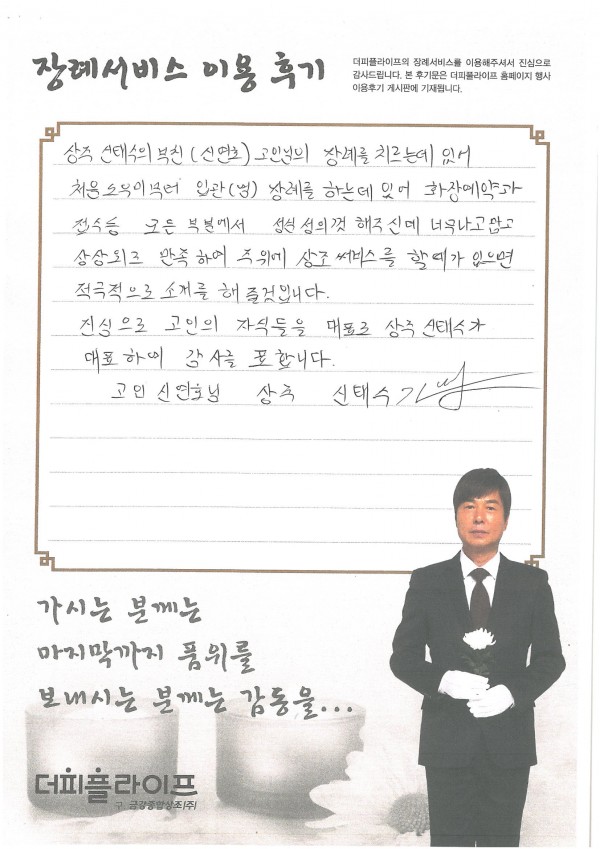 장례서비스 이용 후기
더피플라이프의 장례서비스를 이용해주셔서 진심으로
감사드립니다. 본 후기문은 더피플라이프 홈페이지 행사
이용후기 게시판에 기재됩니다.
상주 신태수의 부친 (신연호) 고인님의 장례를 치르는데 있어
처음 도우미부터 입관(염) 장례를 하는데 있어 화장예약과
접수등 모든 부분에서 성심 성의껏 해주신데 너무나 고맙고
상상외로 만족하여 주위에 상조 써비스를 할때가 있으면
적극적으로 소개를 해 줄것입니다.
진심으로 고인의 자식들을 대표로 상주 신태수가
대표하여 감사를 표합니다.
고인 신연호님 상주 신태수
가시는 분께는
마지막까지 품위를
보내시는 분께는 감동을...
더피플라이프
구 금강종합상조(주)